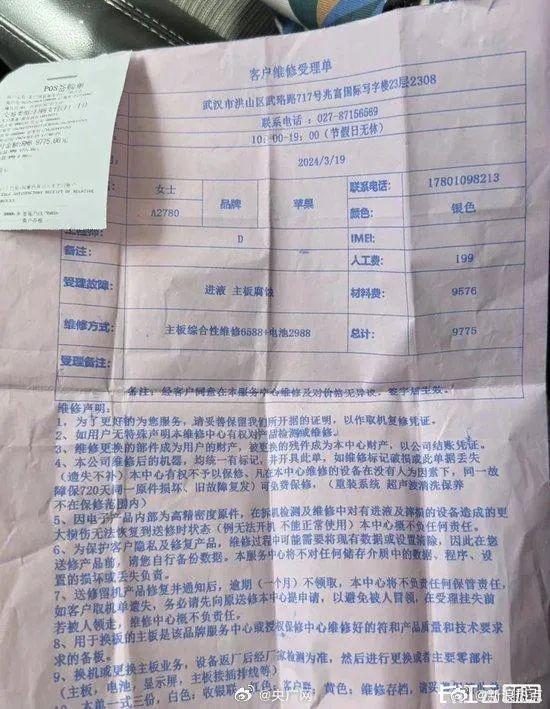 客户维修受理单
POS签购单
武汉市洪山区武珞路717号兆富国际写字楼23层2308
联系电话：027-87156569
10：00-19：00（节假日无休）
RMB 9775.00元
2024/3/19
女士 联系电话： 17801098213
A2780 品牌 苹果 颜色： 银色
工程师： D IMEI：
备注： 人工费： 199
受理故障： 进液 主板腐蚀 材料费： 9576
维修方式： 主板综合性维修6588+电池2988 总计： 9775
受理备注：
备注：经客户同意在本服务中心维修及对价格无异议，签字后生效。
维修声明：
1、为了更好的为您服务，请妥善保留我们所开据的证明，以作取机复修凭证。
2、如用户无特殊声明本维修中心有权对产品检测或维修。
3、维修更换的部件成为用户的财产，被更换的残件成为本中心财产，以公司结账凭证。
4、本公司维修后的机器，均统一有标记，并开具此单，如维修标记破损或此单据丢失
（遗失不补）本中心有权不予以保修、凡在本中心维修的设备在没有人为因素下，同一故
障保720天同一原件损坏、旧故障复发）可免费保修，（重装系统 超声波清洗保养
不在保修范围内）
5、因电子产品内部为高精密度原件，在拆机检测及维修中对有进液及摔损的设备造成的更
大损伤无法恢复到送修时状态（例无法开机 不能正常使用）本中心概不负任何责任。
6、为保护客户隐私及修复产品，维修过程中可能需要将现有数据或设置清除，因此在您
送修产品前，请您自行备份数据。本服务中心将不对任何储存介质中的数据、程序、设
置的损坏或丢失负责。
7、送修留机产品修复并通知后，逾期（一个月）不领取，本中心将不负责任何保管责任，
如客户取机单遗失，务必请先向原送修本中心提申请，以避免被人冒领，在受理挂失前
若被人领走，维修中心概不负责。
8、用于换板的主板是该品牌服务中心或授权保修中心维修好的符和产品质量和技术要求
求的备板。
9、换机或更换主板业务，设备返厂后经厂家检测为准，然后进行更换或者主要零部件
（主板，电池，显示屏，主板接插排线等）
10、本单一式三份，白色：收银联，红色：客户联，黄色：维修存档，请妥善
@央广网
@新浪热点